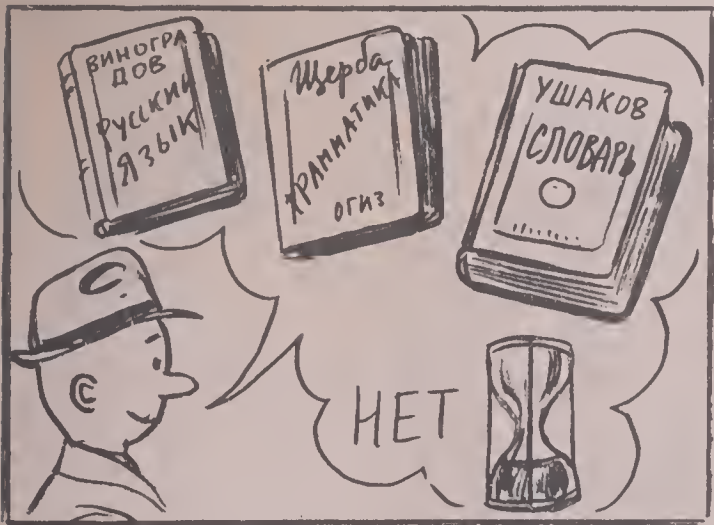 ВИНОГРА
ДОВ
РУССКИЙ
ЯЗЫК
Щерба
ГРАММАТИКА
ОГИЗ
УШАКОВ
СЛОВАРЬ
НЕТ